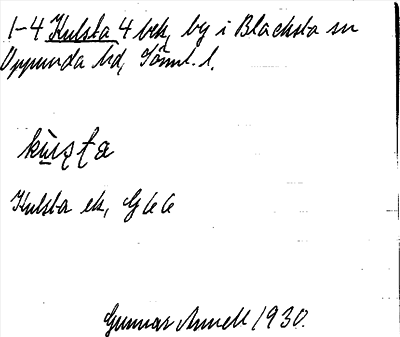 1-4 Kulsta 4 bek, by i Blacksta sn
Oppunda hd, Söml. l.
kùṣṭa
Kulsta ek, G 6 6
Gunnar Annell 1930.